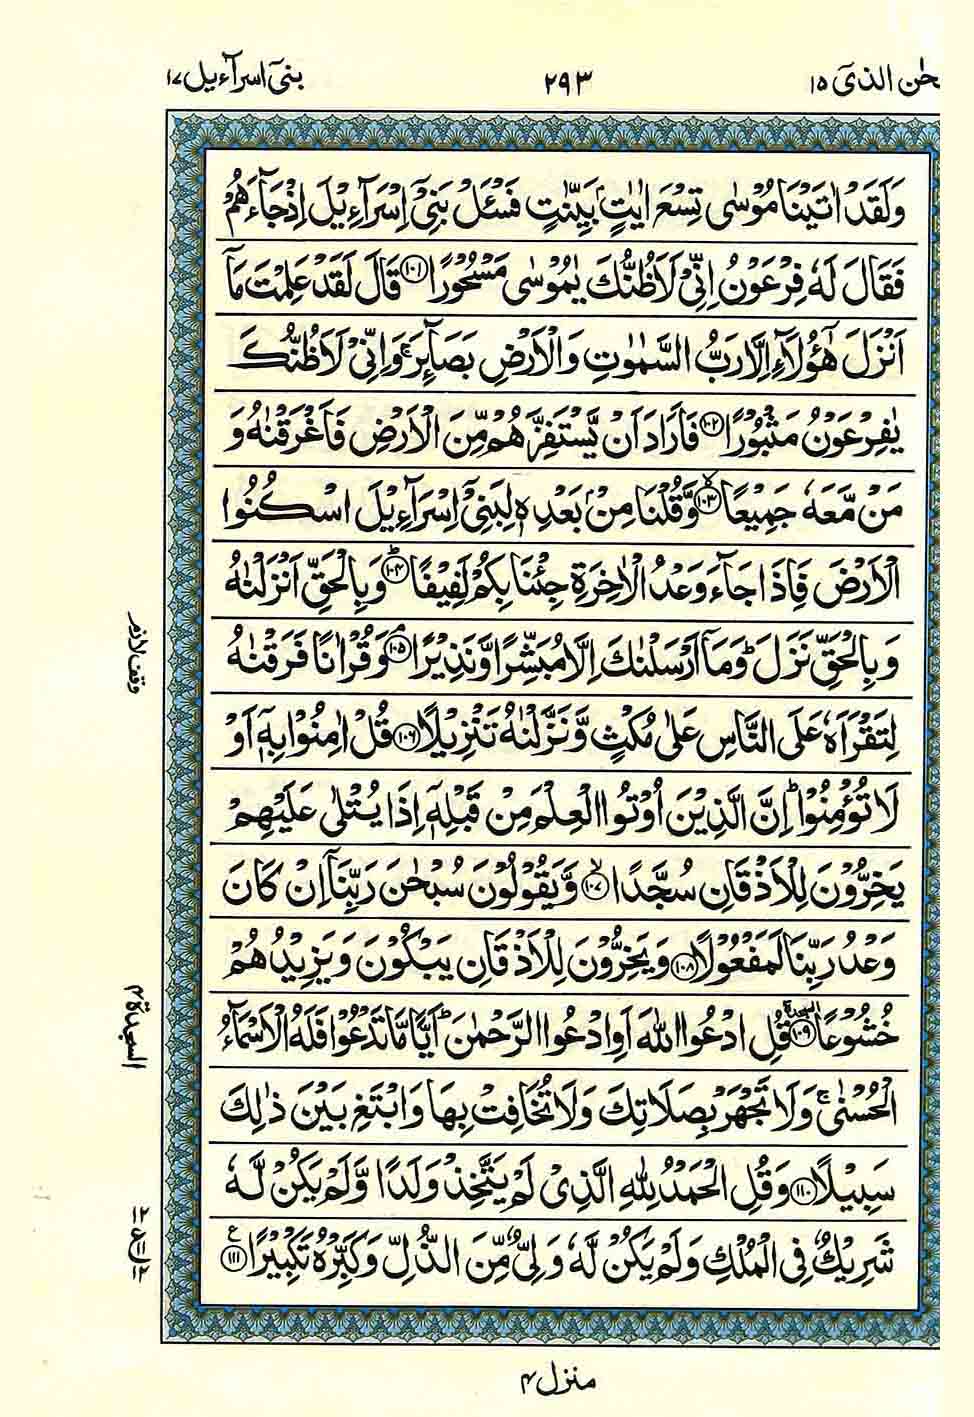 بنیٓ اسرآءیل ۱۷
۲۹۳
الذیٓ ۱۵
وَلَقَدْ اٰتَيْنَا مُوْسٰى تِسْعَ اٰيٰتٍۭ بَيِّنٰتٍ فَسْـَٔلْ بَنِيْٓ اِسْرَآءِيْلَ اِذْ جَآءَهُمْ
فَقَالَ لَهٗ فِرْعَوْنُ اِنِّيْ لَاَظُنُّكَ يٰمُوْسٰى مَسْحُوْرًا ﴿۱۰۱﴾ قَالَ لَقَدْ عَلِمْتَ مَآ
اَنْزَلَ هٰٓؤُلَآءِ اِلَّا رَبُّ السَّمٰوٰتِ وَالْاَرْضِ بَصَآئِرَ ۚ وَاِنِّيْ لَاَظُنُّكَ
يٰفِرْعَوْنُ مَثْبُوْرًا ﴿۱۰۲﴾ فَاَرَادَ اَنْ يَّسْتَفِزَّهُمْ مِّنَ الْاَرْضِ فَاَغْرَقْنٰهُ وَ
مَنْ مَّعَهٗ جَمِيْعًا ﴿۱۰۳﴾ۙ وَّقُلْنَا مِنْۢ بَعْدِهٖ لِبَنِيْٓ اِسْرَآءِيْلَ اسْكُنُوا
الْاَرْضَ فَاِذَا جَآءَ وَعْدُ الْاٰخِرَةِ جِئْنَا بِكُمْ لَفِيْفًا ﴿۱۰۴﴾ؕ وَبِالْحَقِّ اَنْزَلْنٰهُ
وَبِالْحَقِّ نَزَلَ ؕ وَمَآ اَرْسَلْنٰكَ اِلَّا مُبَشِّرًا وَّنَذِيْرًا ﴿۱۰۵﴾ۘ وَقُرْاٰنًا فَرَقْنٰهُ
وقف لازم
لِتَقْرَاَهٗ عَلَى النَّاسِ عَلٰى مُكْثٍ وَّنَزَّلْنٰهُ تَنْزِيْلًا ﴿۱۰۶﴾ قُلْ اٰمِنُوْا بِهٖٓ اَوْ
لَا تُؤْمِنُوْا ؕ اِنَّ الَّذِيْنَ اُوْتُوا الْعِلْمَ مِنْ قَبْلِهٖٓ اِذَا يُتْلٰى عَلَيْهِمْ
يَخِرُّوْنَ لِلْاَذْقَانِ سُجَّدًا ﴿۱۰۷﴾ۙ وَّيَقُوْلُوْنَ سُبْحٰنَ رَبِّنَآ اِنْ كَانَ
وَعْدُ رَبِّنَا لَمَفْعُوْلًا ﴿۱۰۸﴾ وَيَخِرُّوْنَ لِلْاَذْقَانِ يَبْكُوْنَ وَيَزِيْدُهُمْ
خُشُوْعًا ﴿۱۰۹﴾ السجدة قُلِ ادْعُوا اللّٰهَ اَوِ ادْعُوا الرَّحْمٰنَ ؕ اَيًّا مَّا تَدْعُوْا فَلَهُ الْاَسْمَآءُ
السجدة ۴
الْحُسْنٰى ۚ وَلَا تَجْهَرْ بِصَلَاتِكَ وَلَا تُخَافِتْ بِهَا وَابْتَغِ بَيْنَ ذٰلِكَ
سَبِيْلًا ﴿۱۱۰﴾ وَقُلِ الْحَمْدُ لِلّٰهِ الَّذِيْ لَمْ يَتَّخِذْ وَلَدًا وَّلَمْ يَكُنْ لَّهٗ
شَرِيْكٌ فِي الْمُلْكِ وَلَمْ يَكُنْ لَّهٗ وَلِيٌّ مِّنَ الذُّلِّ وَكَبِّرْهُ تَكْبِيْرًا ﴿۱۱۱﴾ ع
منزل ۴